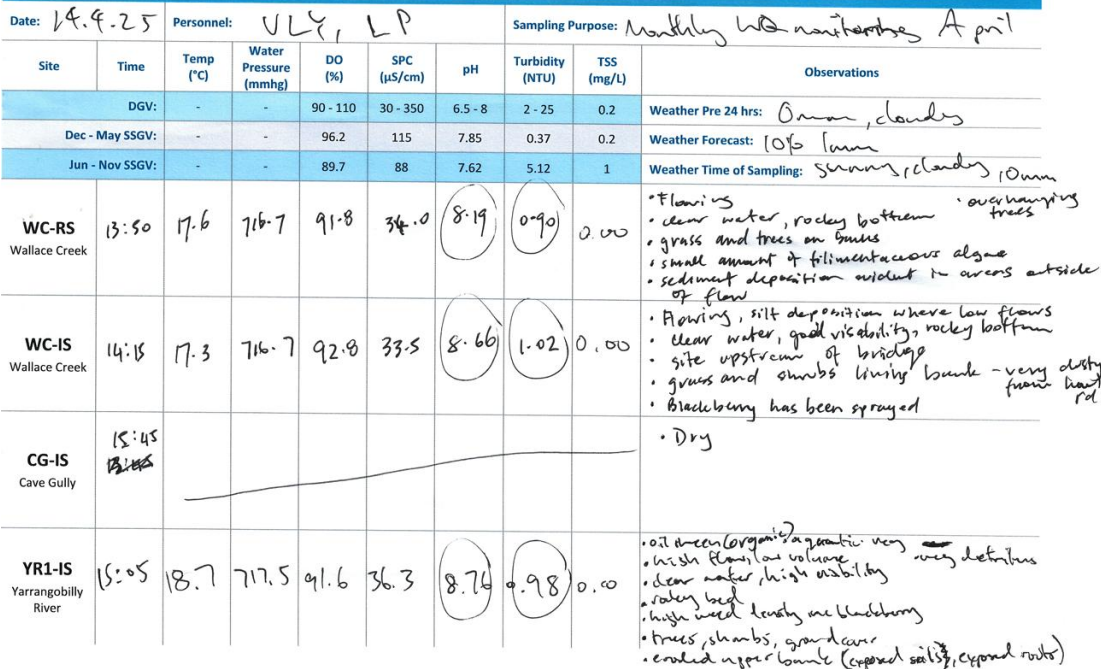 Date: 14.4.25 Personnel: VLY, LP Sampling Purpose: Monthly WQ monitoring April
Site Time Temp (°C) Water Pressure (mmhg) DO (%) SPC (µS/cm) pH Turbidity (NTU) TSS (mg/L) Observations
DGV: - - 90 - 110 30 - 350 6.5 - 8 2 - 25 0.2 Weather Pre 24 hrs: 0mm, cloudy
Dec - May SSGV: - - 96.2 115 7.85 0.37 0.2 Weather Forecast: 10% 1mm
Jun - Nov SSGV: - - 89.7 88 7.62 5.12 1 Weather Time of Sampling: sunny, cloudy, 0mm
WC-RS Wallace Creek 13:50 17.6 716.7 91.8 34.0 8.19 0.90 0.00
• Flowing • overhanging trees
• clear water, rocky bottom
• grass and trees on banks
• small amount of filimentaceous algae
• sediment deposition evident in areas outside
of flow
WC-IS Wallace Creek 14:15 17.3 716.7 92.8 33.5 8.66 1.02 0.00
• Flowing, silt deposition where low flows
• clear water, good visability, rocky bottom
• site upstream of bridge
• grass and shrubs lining bank - very dusty from haul rd
• Blackberry has been sprayed
CG-IS Cave Gully 15:45
• Dry
YR1-IS Yarrangobilly River 15:05 18.7 717.5 91.6 36.3 8.76 .98 0.00
• oil sheen (organic) aquatic veg
• high flow, low volume • veg detritus
• clear water, high visibility
• rocky bed
• high weed density inc blackberry
• trees, shrubs, ground cover
• eroded upper bank (exposed soils, exposed roots)